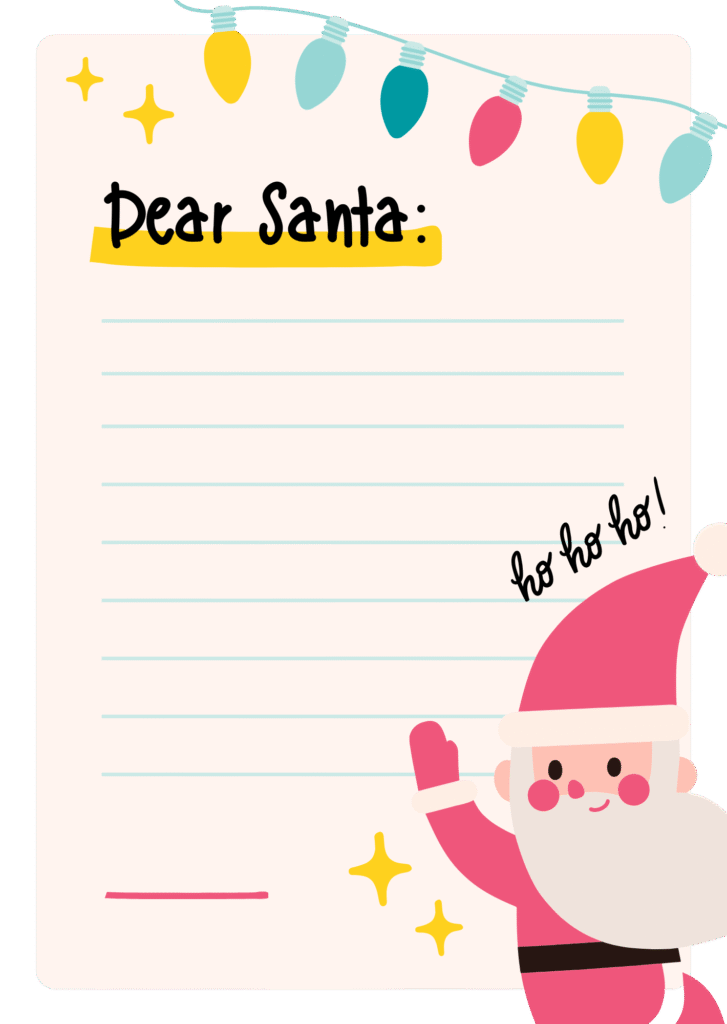 Dear Santa:
ho ho ho!